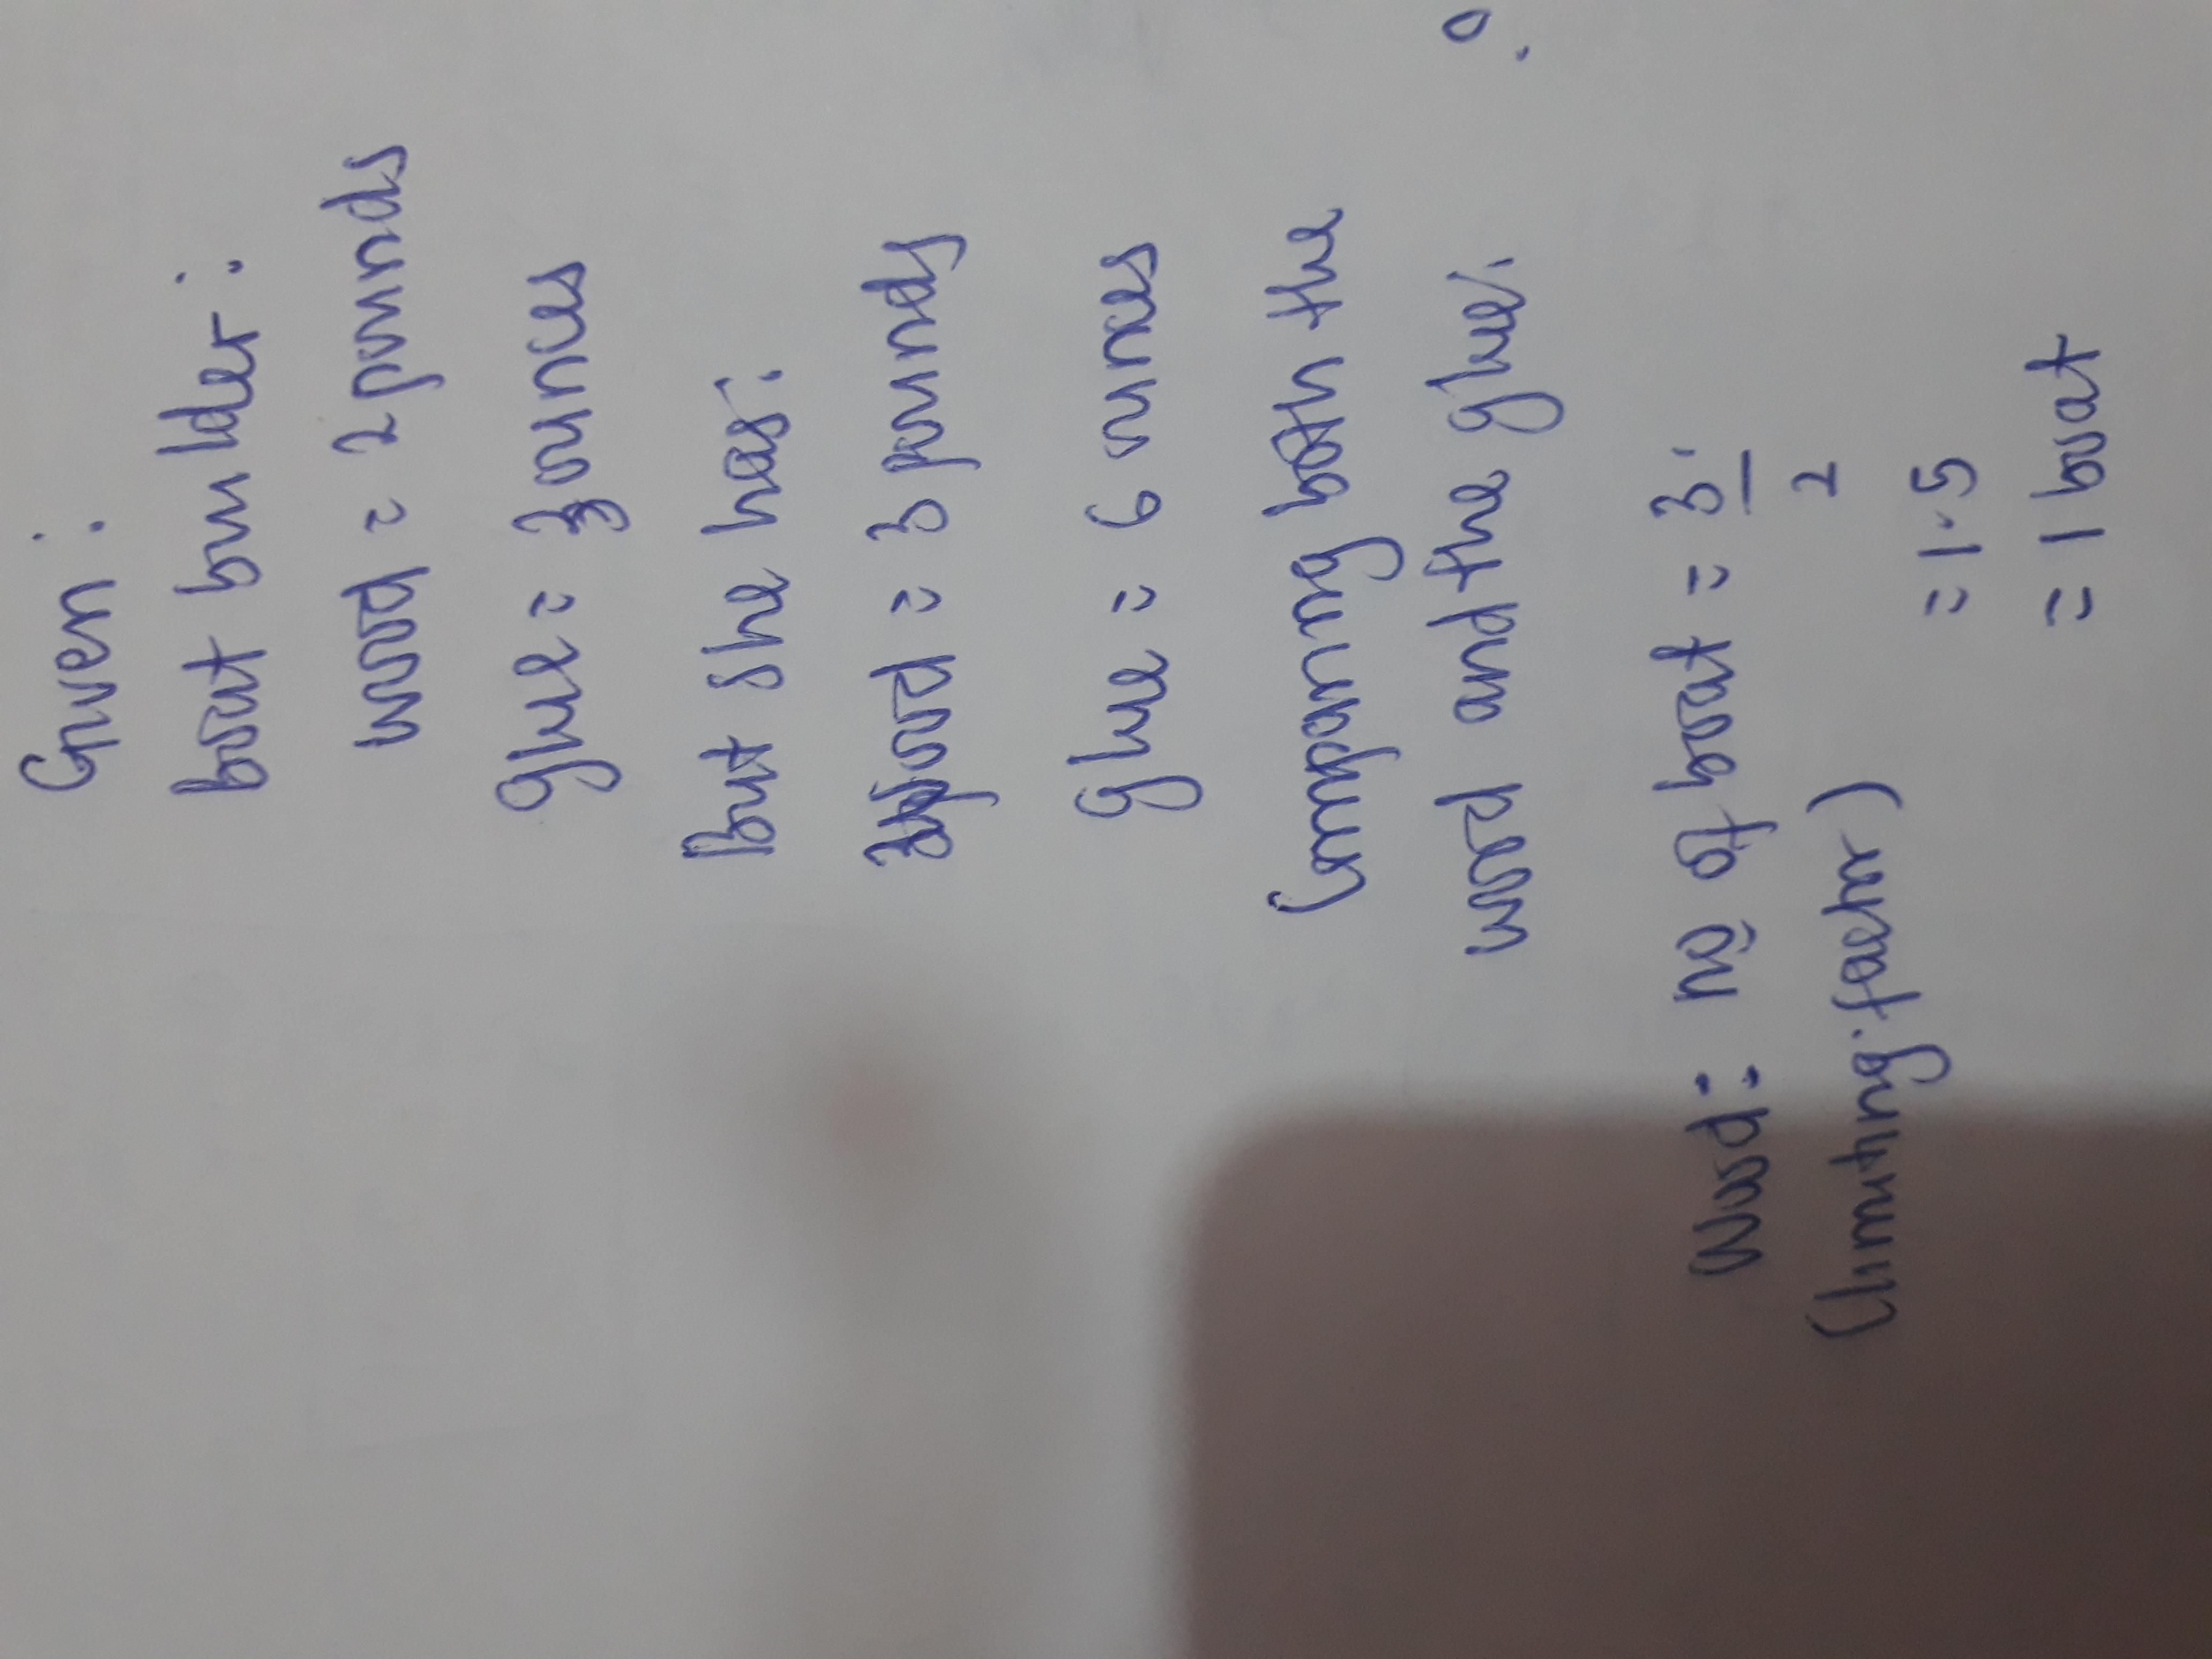 Given:
boat builder:
wood = 2 pounds
glue = 3 ounces
But she has:
wood = 3 pounds
glue = 6 ounces
Comparing both the
wood and the glue:
Wood: no of boat = 3/2
(limiting factor)
= 1.5
= 1 boat